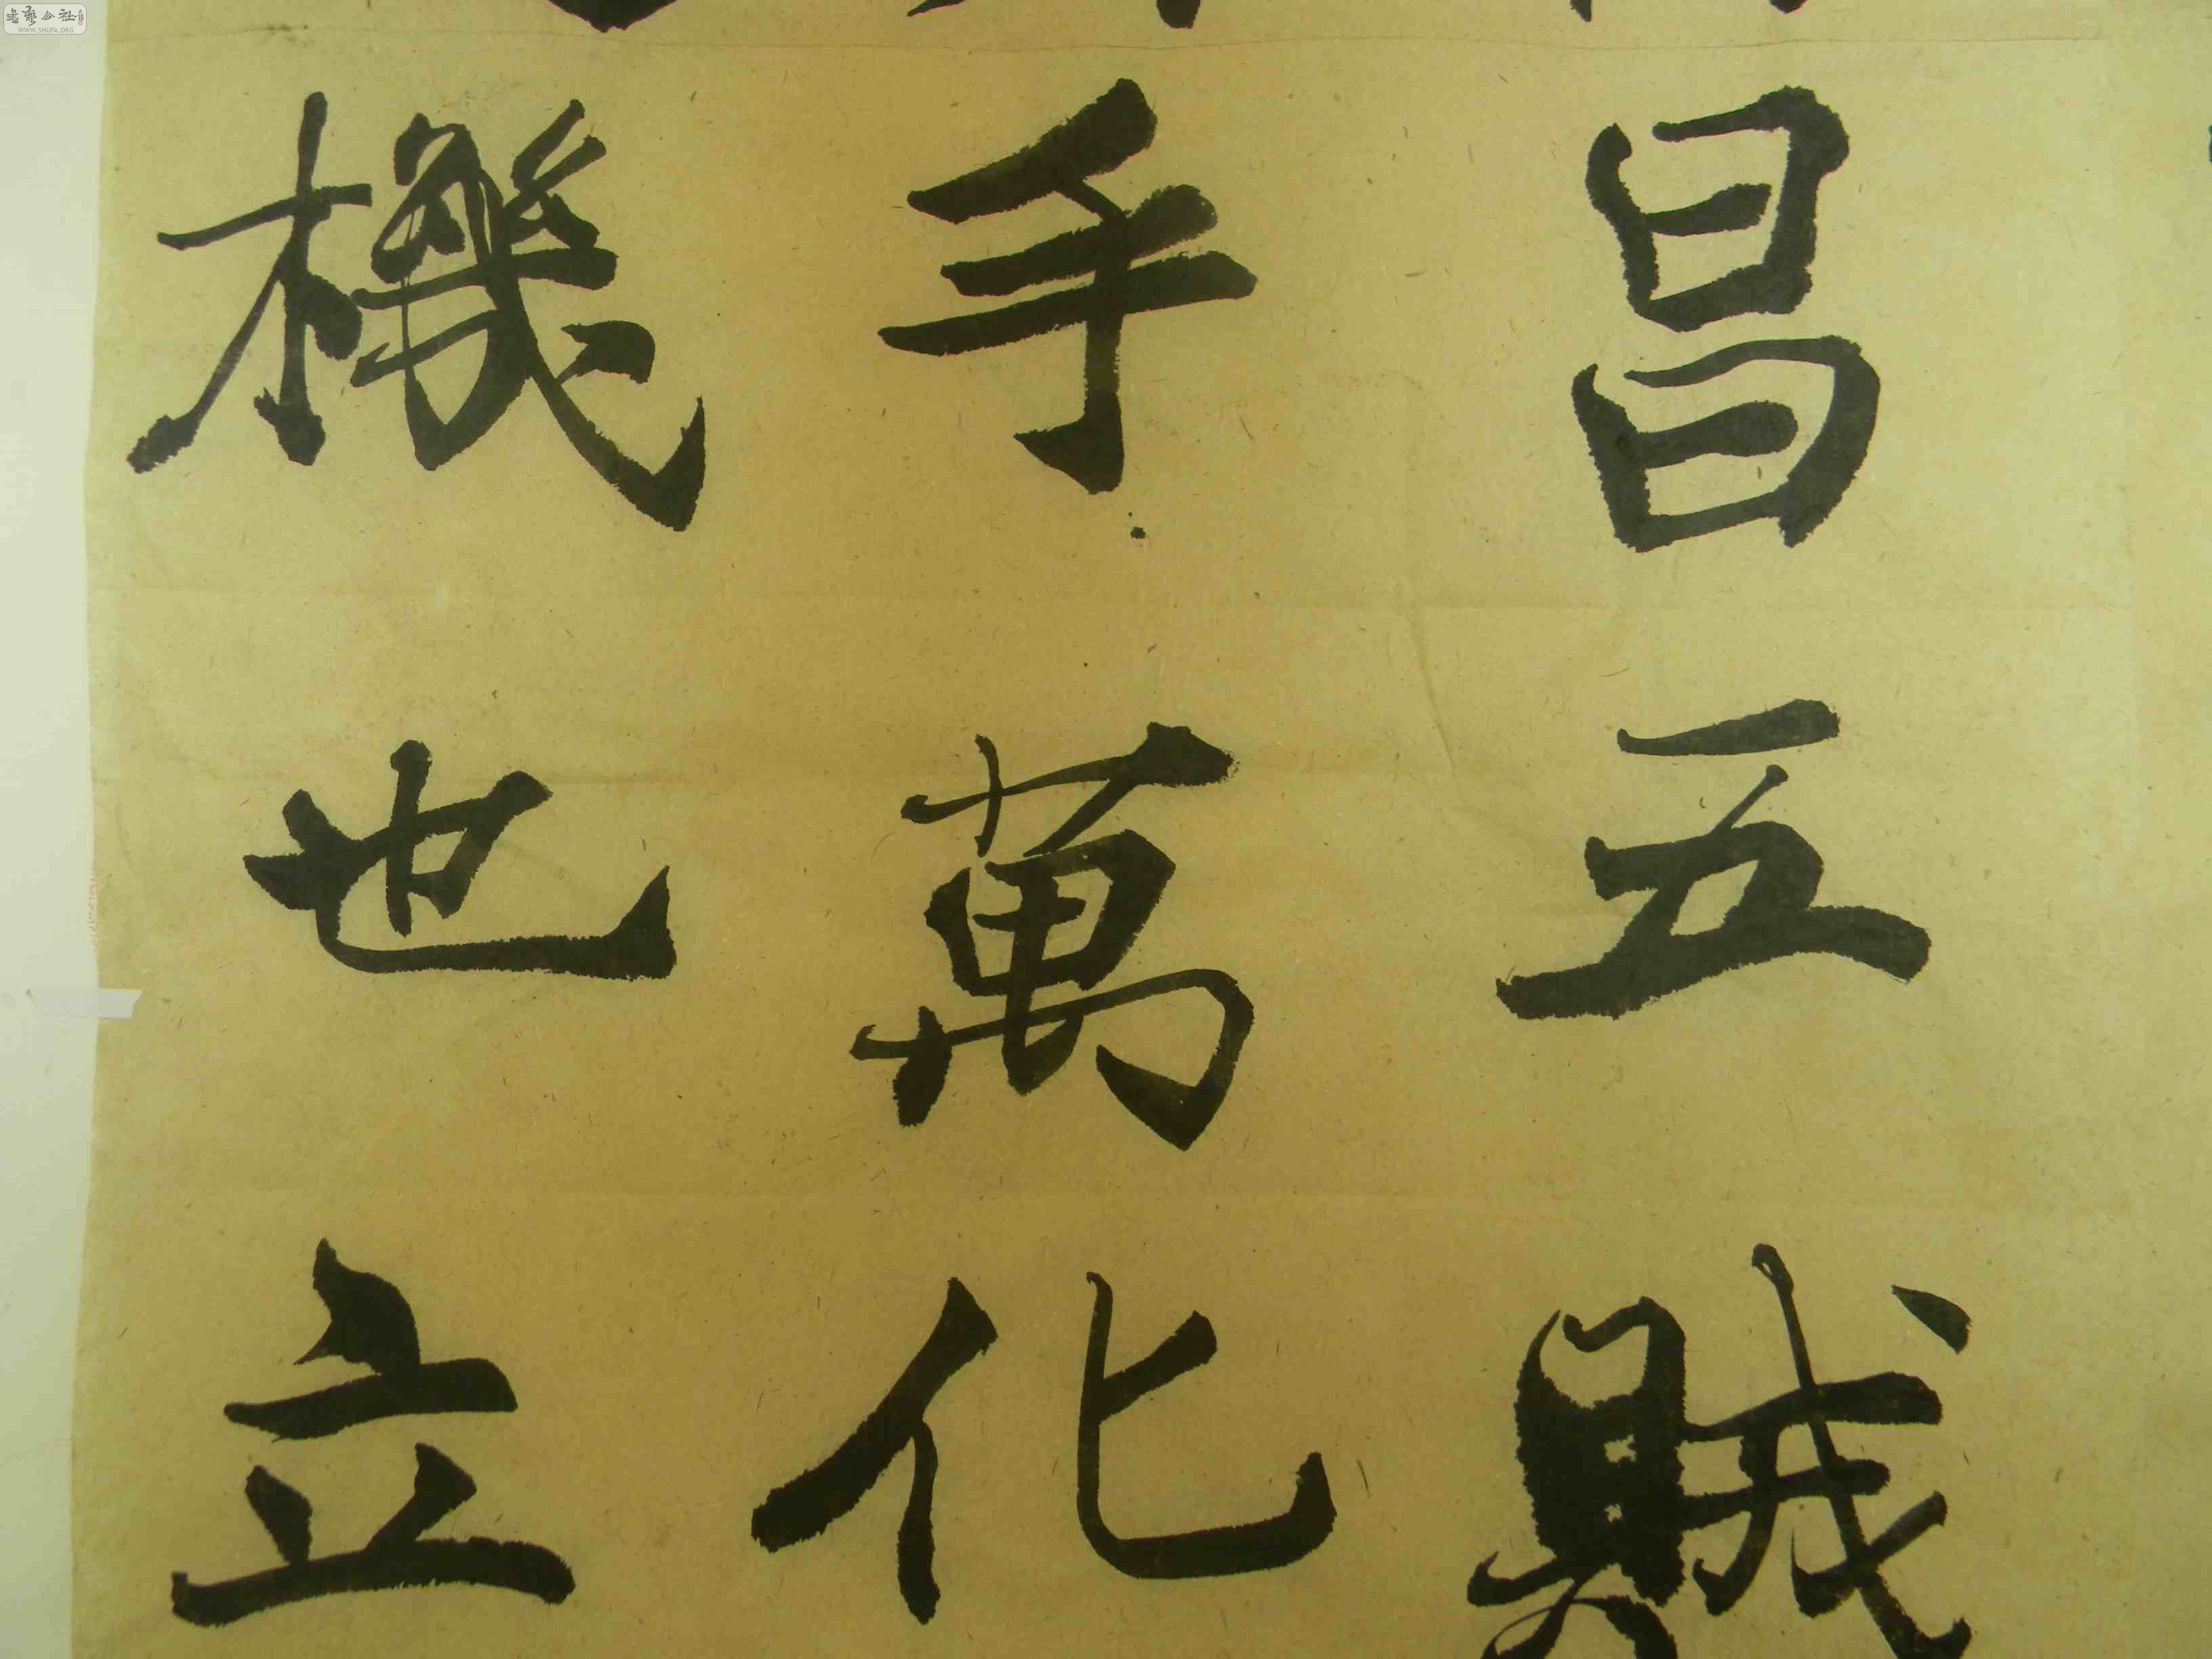 昌五賊
手萬化
機也立
書藝公社
WWW.SHUFA.ORG